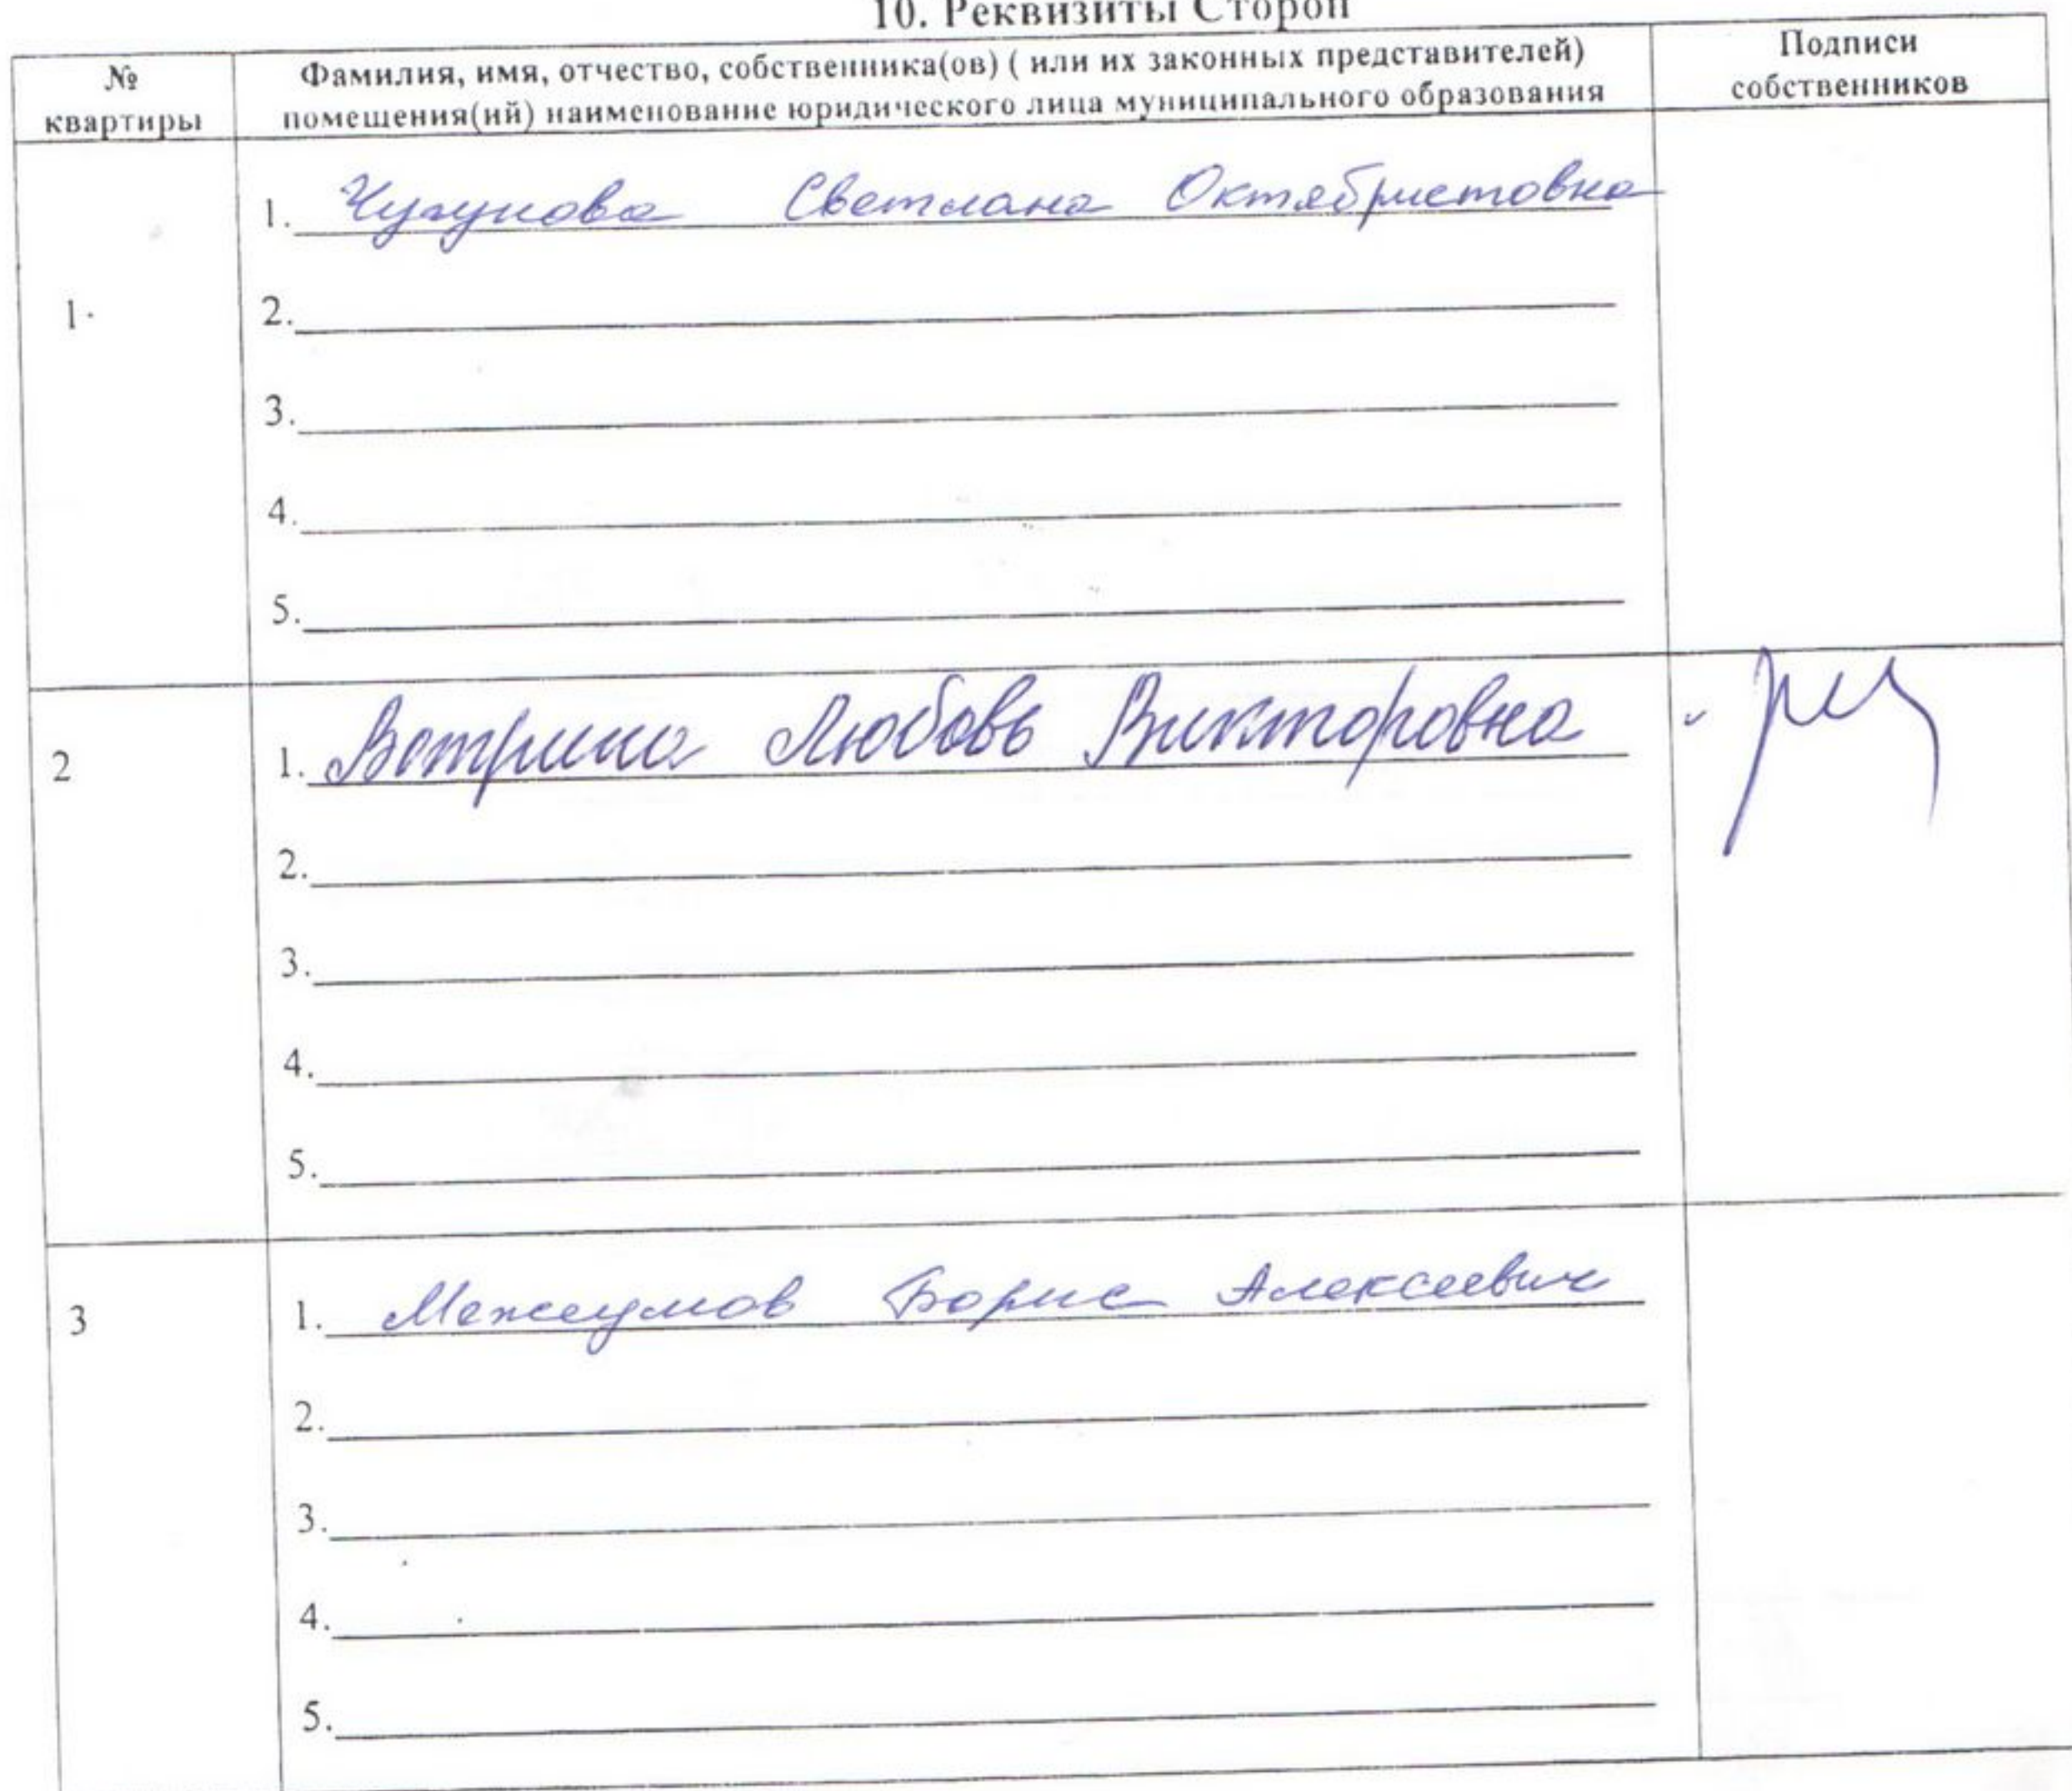 10. Реквизиты Сторон
№ квартиры
Фамилия, имя, отчество, собственника(ов) ( или их законных представителей)
помещения(ий) наименование юридического лица муниципального образования
Подписи
собственников
1.
1. Чугунова Светлана Октябристовна
2.
3.
4.
5.
2
1. Вотрина Любовь Викторовна
2.
3.
4.
5.
3
1. Межлумов Борис Алексеевич
2.
3.
4.
5.